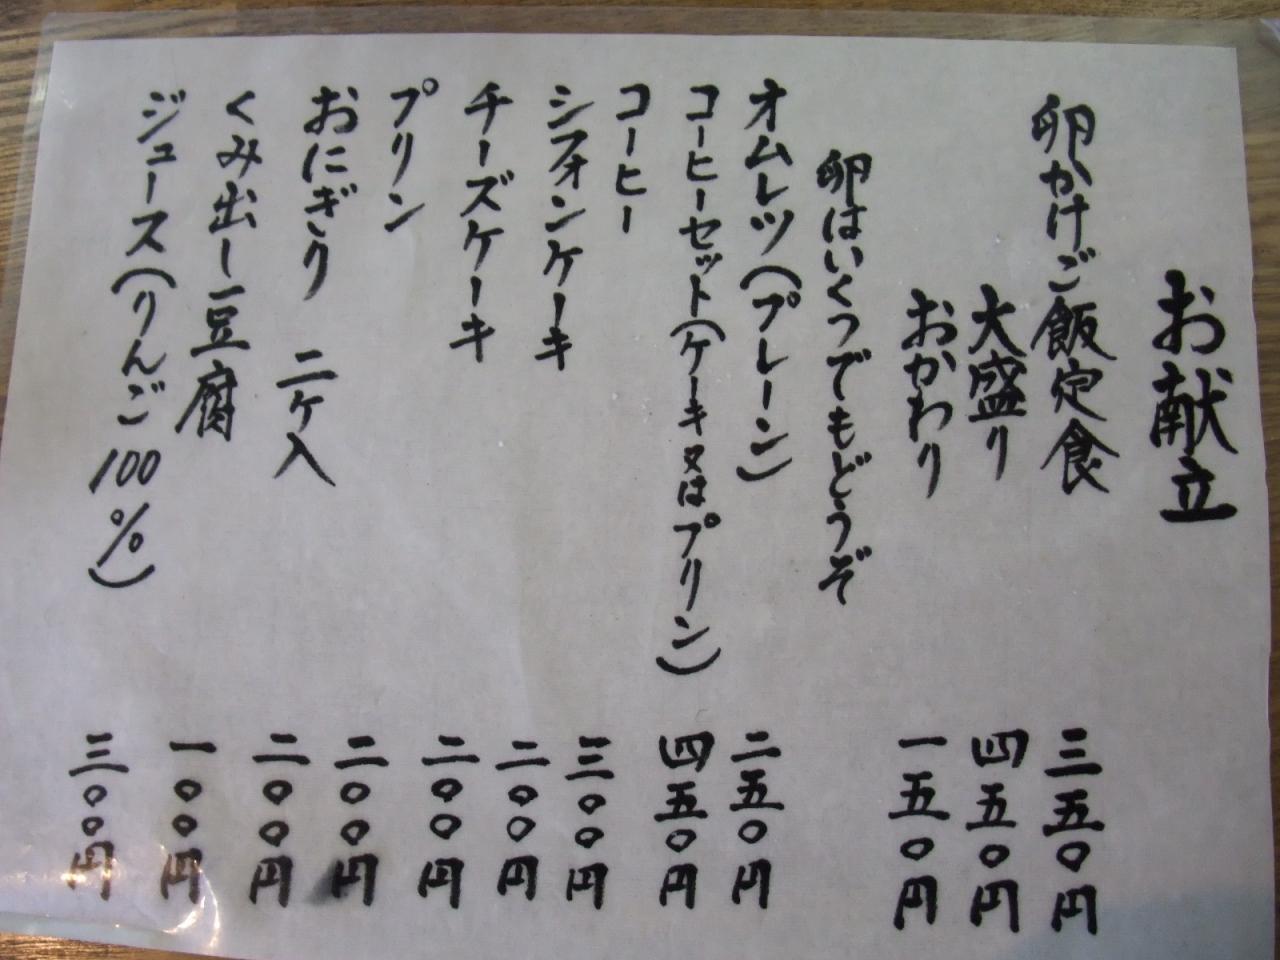 お献立
卵かけご飯定食 三五〇円
大盛り 四五〇円
おかわり 一五〇円
卵はいくつでもどうぞ
オムレツ(プレーン) 二五〇円
コーヒーセット(ケーキ又はプリン) 四五〇円
コーヒー 三〇〇円
シフォンケーキ 二〇〇円
チーズケーキ 二〇〇円
プリン 二〇〇円
おにぎり 二ケ入 二〇〇円
くみ出し豆腐 一〇〇円
ジュース(りんご100%) 三〇〇円